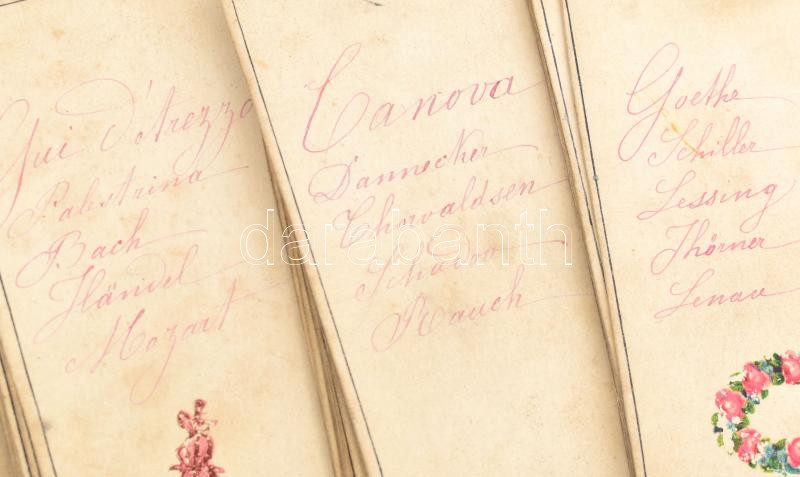 Gui d'Arezzo
Palestrina
Bach
Händel
Mozart
Canova
Dannecker
Thorvaldsen
Schadow
Rauch
Goethe
Schiller
Lessing
Thörner
Lenau
darabanth